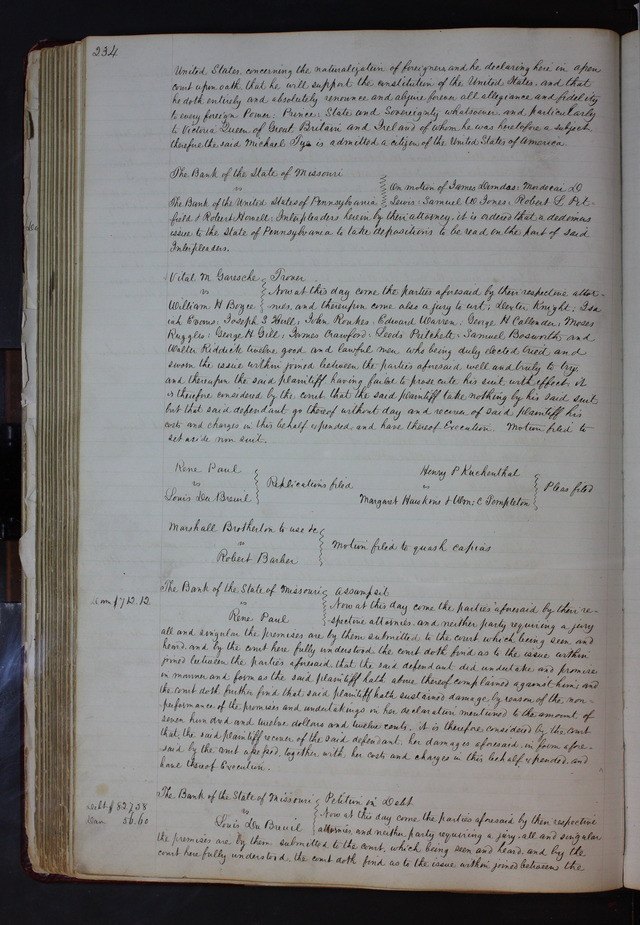 234
United States, concerning the naturalization of foreigners and he declaring here in open
court upon oath, that he will support the constitution of the United States, and that
he doth entirely and absolutely renounce and abjure forever all allegiance and fidelity
to every foreign Power, Prince, State and Sovereignty whatsoever, and particularly
to Victoria Queen of Great Britain and Ireland of whom he was heretofore a subject
therefore the said Michael is admitted a citizen of the United States of America.
The Bank of the State of Missouri
vs
On motion of James Dundas, Mordecai D
The Bank of the United States of Pennsylvania Lewis, Samuel W Jones, Robert L Pit-
field & Robert Howell, Interpleaders herein by their attorney, it is ordered that a dedimus
issue to the State of Pennsylvania to take depositions to be read on the part of said
Interpleaders.
Vital M Garesche Trover
vs Now at this day come the parties aforesaid by their respective attor-
William H Boyce nies and thereupon come also a jury to wit; Dexter Knight, Isa
iah Evans, Joseph S Hull, John Rourkes, Edward Warren, George H Callender, Moses
Ruggles, George H Gill, James Crawford, Samuel Bosworth and
Walter Riddick twelve good and lawful men who being duly elected tried and
sworn the issue within joined between the parties aforesaid well and truly to try,
and thereupon the said plaintiff having failed to prosecute his suit with effect it
is therefore considered by the court that the said plaintiff take nothing by his said suit
but that said defendant go thereof without day and recover of said plaintiff his
costs and charges in this behalf expended, and have thereof Execution. Motion filed to
set aside non suit.
Rene Paul
vs Replications filed
Louis Du Breuil
Henry P Kuchenthal
vs Pleas filed
Margaret Hawkins & Wm: C Templeton
Marshall Brotherton to use &c
vs Motion filed to quash capias
Robert Barber
The Bank of the State of Missouri Assumpsit
Dam $712.12
vs Now at this day come the parties aforesaid by their re-
Rene Paul spective attornies, and neither party requiring a jury
all and singular the premises are by them submitted to the court which being seen and
heard and by the court here fully understood, the court doth find as to the issue within
joined between the parties aforesaid, that the said defendant did undertake and promise
in manner and form as the said plaintiff hath above thereof complained against him, and
the court doth further find that said plaintiff hath sustained damage by reason of the non-
performance of the promises and undertakings in her declaration mentioned to the amount of
seven hundred and twelve dollars and twelve cents, it is therefore considered by the court
that the said plaintiff recover of the said defendant her damages aforesaid in form afore-
said by the court assessed, together with her costs and charges in this behalf expended, and
have thereof Execution.
The Bank of the State of Missouri Petition in Debt
Debt $827.38
Dam 56.60
vs Now at this day come the parties aforesaid by their respective
Louis Du Breuil attornies, and neither party requiring a jury, all and singular
the premises are by them submitted to the court, which being seen and heard, and by the
court here fully understood, the court doth find as to the issue within joined between the